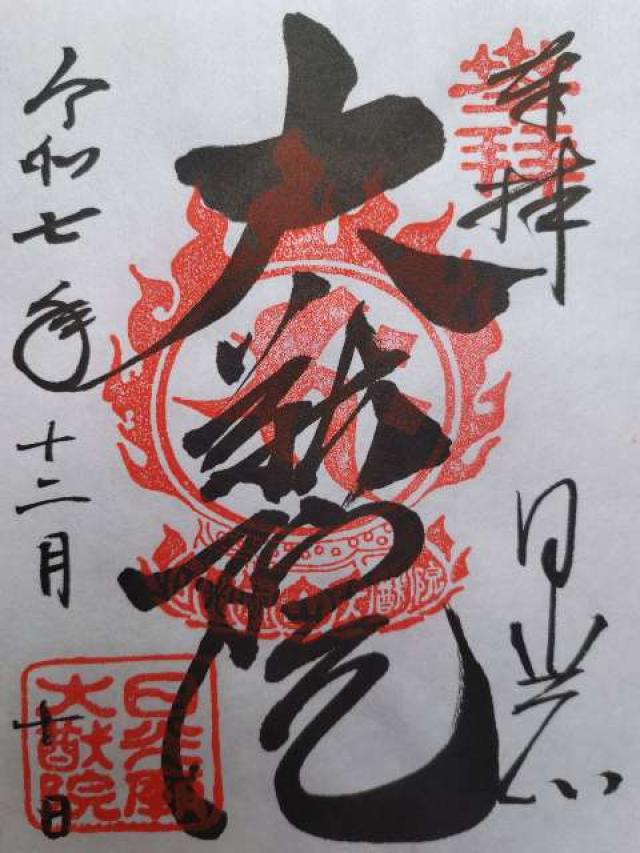 奉拝
日光
大猷院
令和七年十二月十日
日光廟
大猷院